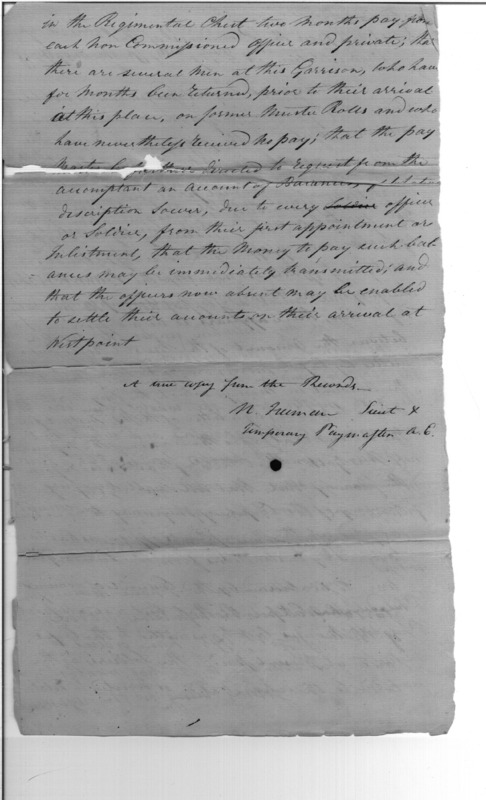 in the Regimental Chest two months pay from
each Non Commissioned officer and private; that
there are several men at this Garrison, who have
for months been returned, prior to their arrival
at this place, on former Muster Rolls and who
have nevertheless received no pay; that the pay
Master be further directed to request from the
accomptant an account of Balances, of
description soever, due to every Soldier officer
or Soldier, from their first appointment or
Inlistment, that the Money to pay such bal
ances may be immediately transmitted; and
that the officers now absent may be enabled
to settle their accounts on their arrival at
Westpoint
A true copy from the Records
N. Freeman Lieut &
Temperary Paymaster A. E.